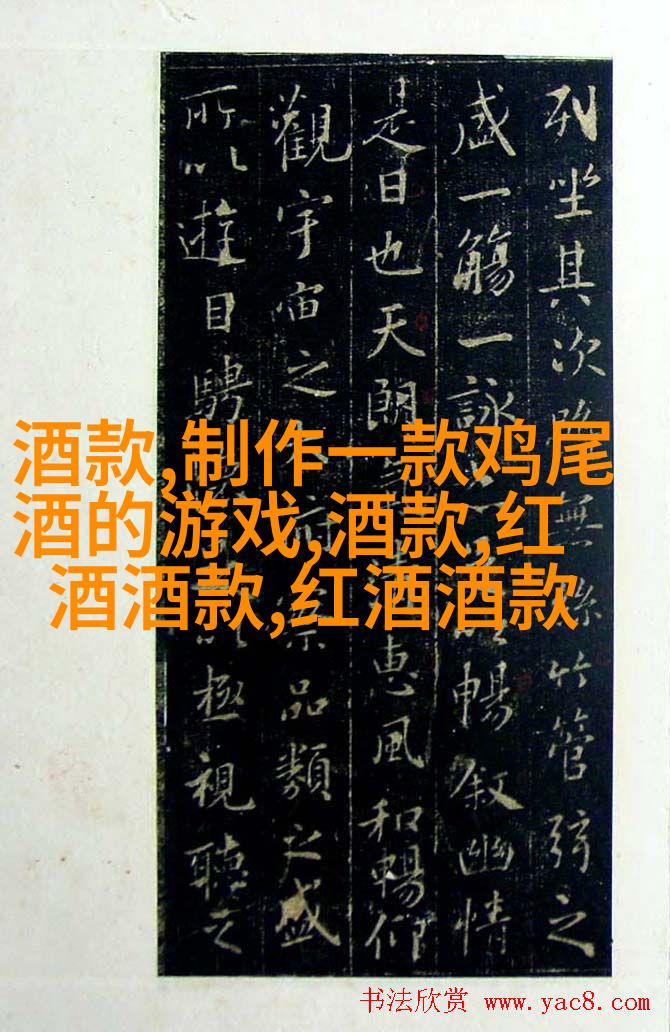 酒款,制作一款鸡尾
酒的游戏,酒款,红
酒酒款,红酒酒款
列坐其次無絲竹管弦之
盛一觴一詠暢叙幽情
是日也天朗清惠風和暢仰
觀宇宙之品類之盛
所以遊目騁極視聽之
书法欣赏 www.yac8.com